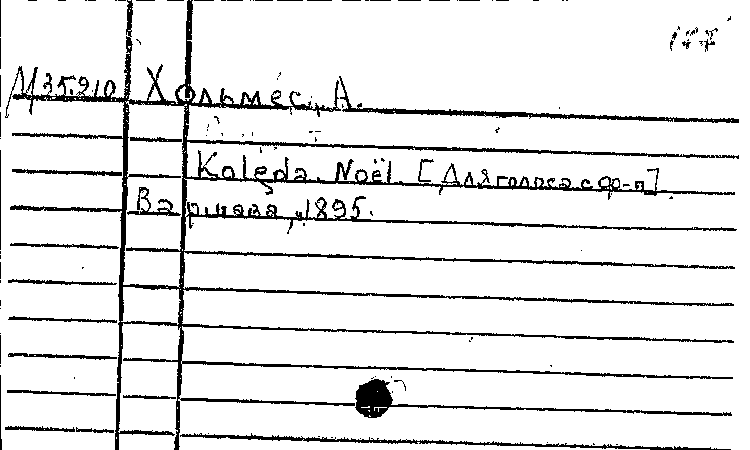 М35.910 Хольмес, А.
Kolęda. Noël. [Для голоса с ф-п].
Варшава, 1895.